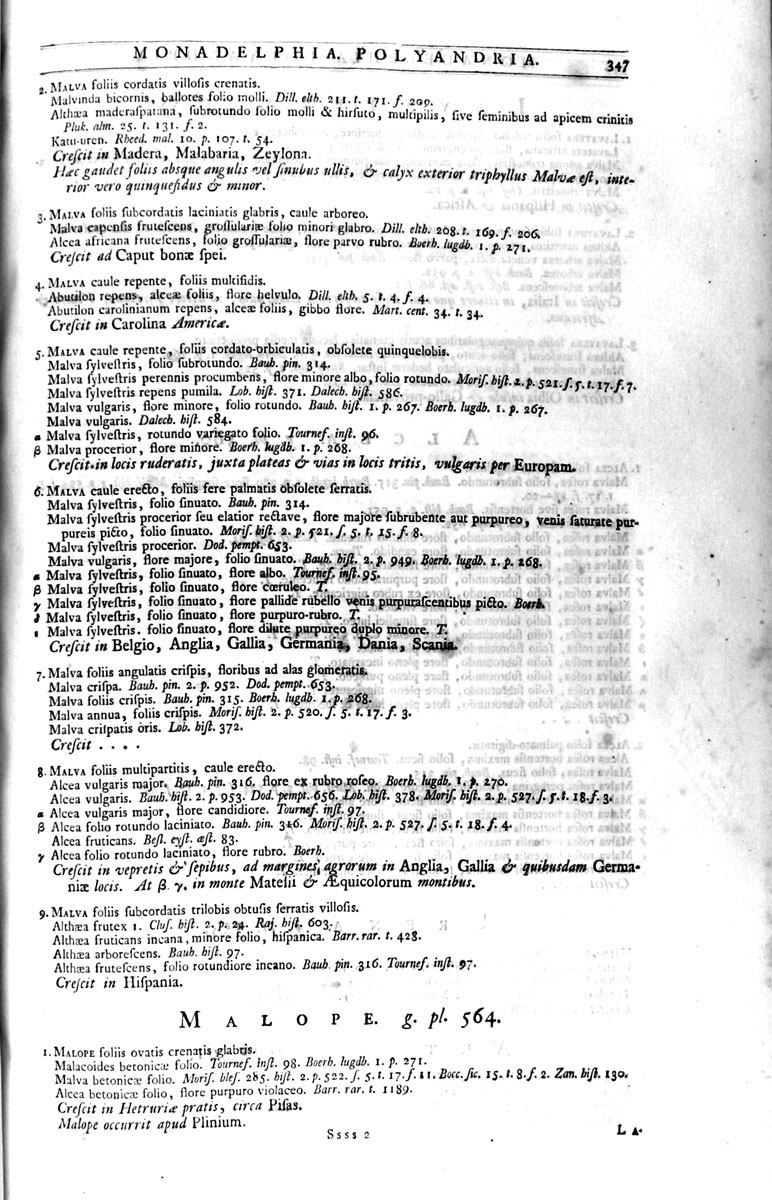 MONADELPHIA. POLYANDRIA. 347
2. MALVA foliis cordatis villoſis crenatis.
Malvinda bicornis, ballotes folio molli. Dill. elth. 211. t. 171. f. 209.
Althæa maderaſpatana, ſubrotundo folio molli & hirſuto, multipilis, ſive ſeminibus ad apicem crinitis
Pluk. alm. 25. t. 131. f. 2.
Katu-uren. Rheed. mal. 10. p. 107. t. 54.
Creſcit in Madera, Malabaria, Zeylona.
Hæc gaudet foliis absque angulis vel ſinubus ullis, & calyx exterior triphyllus Malvæ eſt, inte-
rior vero quinquefidus & minor.
3. MALVA foliis ſubcordatis laciniatis glabris, caule arboreo.
Malva capenſis fruteſcens, groſſulariæ folio minori glabro. Dill. elth. 208. t. 169. f. 206.
Alcea africana fruteſcens, folio groſſulariæ, flore parvo rubro. Boerh. lugdb. 1. p. 271.
Creſcit ad Caput bonæ ſpei.
4. MALVA caule repente, foliis multifidis.
Abutilon repens, alceæ foliis, flore helvulo. Dill. elth. 5. t. 4. f. 4.
Abutilon carolinianum repens, alceæ foliis, gibbo flore. Mart. cent. 34. t. 34.
Creſcit in Carolina Americæ.
5. MALVA caule repente, foliis cordato-orbiculatis, obſolete quinquelobis.
Malva ſylveſtris, folio ſubrotundo. Bauh. pin. 314.
Malva ſylveſtris perennis procumbens, flore minore albo, folio rotundo. Moriſ. hiſt. 2. p. 521. ſ. 5. t. 17. f. 7.
Malva ſylveſtris repens pumila. Lob. hiſt. 371. Dalech. hiſt. 586.
Malva vulgaris, flore minore, folio rotundo. Bauh. hiſt. 1. p. 267. Boerh. lugdb. 1. p. 267.
Malva vulgaris. Dalech. hiſt. 584.
α Malva ſylveſtris, rotundo variegato folio. Tournef. inſt. 96.
β Malva procerior, flore minore. Boerh. lugdb. 1. p. 268.
Creſcit in locis ruderatis, juxta plateas & vias in locis tritis, vulgaris per Europam.
6. MALVA caule erecto, foliis fere palmatis obſolete ſerratis.
Malva ſylveſtris, folio ſinuato. Bauh. pin. 314.
Malva ſylveſtris procerior ſeu elatior rectave, flore majore ſubrubente aut purpureo, venis ſaturate pur-
pureis picto, folio ſinuato. Moriſ. hiſt. 2. p. 521. ſ. 5. t. 15. f. 8.
Malva ſylveſtris procerior. Dod. pempt. 653.
Malva vulgaris, flore majore, folio ſinuato. Bauh. hiſt. 2. p. 949. Boerh. lugdb. 1. p. 268.
α Malva ſylveſtris, folio ſinuato, flore albo. Tournef. inſt. 95.
β Malva ſylveſtris, folio ſinuato, flore cœruleo. T.
γ Malva ſylveſtris, folio ſinuato, flore pallide rubello venis purpuraſcentibus picto. Boerh.
δ Malva ſylveſtris, folio ſinuato, flore purpuro-rubro. T.
ε Malva ſylveſtris. folio ſinuato, flore dilute purpureo duplo minore. T.
Creſcit in Belgio, Anglia, Gallia, Germania, Dania, Scania.
7. Malva foliis angulatis criſpis, floribus ad alas glomeratis.
Malva criſpa. Bauh. pin. 2. p. 952. Dod. pempt. 653.
Malva foliis criſpis. Bauh. pin. 315. Boerh. lugdb. 1. p. 268.
Malva annua, foliis criſpis. Moriſ. hiſt. 2. p. 520. ſ. 5. t. 17. f. 3.
Malva criſpatis oris. Lob. hiſt. 372.
Creſcit . . . .
8. MALVA foliis multipartitis, caule erecto.
Alcea vulgaris major. Bauh. pin. 316. flore ex rubro roſeo. Boerh. lugdb. 1. p. 270.
Alcea vulgaris. Bauh. hiſt. 2. p. 953. Dod. pempt. 656. Lob. hiſt. 378. Moriſ. hiſt. 2. p. 527. ſ. 5. t. 18. f. 3.
α Alcea vulgaris major, flore candidiore. Tournef. inſt. 97.
β Alcea folio rotundo laciniato. Bauh. pin. 316. Moriſ. hiſt. 2. p. 527. ſ. 5. t. 18. f. 4.
Alcea fruticans. Beſl. eyſt. æſt. 83.
γ Alcea folio rotundo laciniato, flore rubro. Boerh.
Creſcit in vepretis & ſepibus, ad margines agrorum in Anglia, Gallia & quibusdam Germa-
niæ locis. At β. γ. in monte Mateſii & Æquicolorum montibus.
9. MALVA foliis ſubcordatis trilobis obtuſis ſerratis villoſis.
Althæa frutex 1. Cluſ. hiſt. 2. p. 24. Raj. hiſt. 603.
Althæa fruticans incana, minore folio, hiſpanica. Barr. rar. t. 428.
Althæa arboreſcens. Bauh. hiſt. 97.
Althæa fruteſcens, folio rotundiore incano. Bauh. pin. 316. Tournef. inſt. 97.
Creſcit in Hiſpania.
MALOPE. g. pl. 564.
1. MALOPE foliis ovatis crenatis glabris.
Malacoides betonicæ folio. Tournef. inſt. 98. Boerh. lugdb. 1. p. 271.
Malva betonicæ folio. Moriſ. bleſ. 285. hiſt. 2. p. 522. ſ. 5. t. 17. f. 11. Bocc. ſic. 15. t. 8. f. 2. Zan. hiſt. 130.
Alcea betonicæ folio, flore purpuro violaceo. Barr. rar. t. 1189.
Creſcit in Hetruriæ pratis, circa Piſas.
Malope occurrit apud Plinium.
Ssss 2 LA-